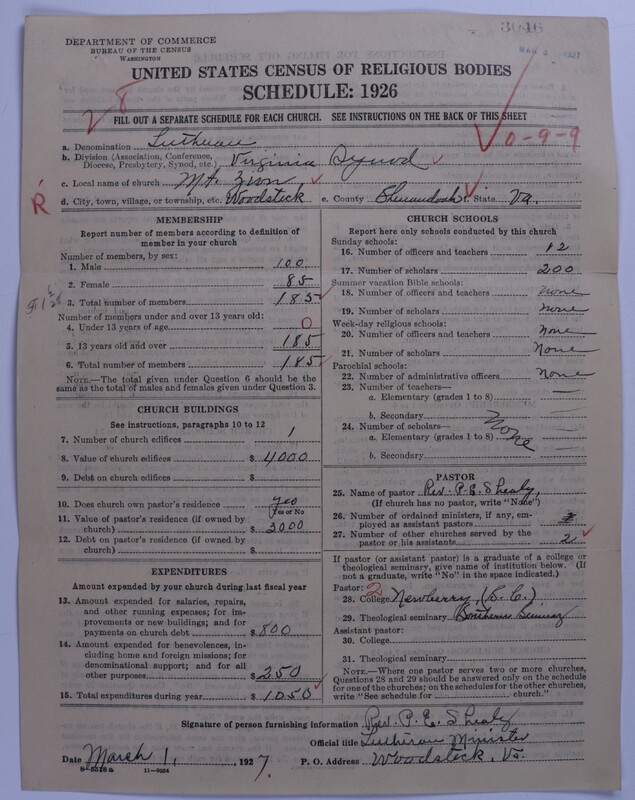 3046
DEPARTMENT OF COMMERCE
BUREAU OF THE CENSUS
WASHINGTON
UNITED STATES CENSUS OF RELIGIOUS BODIES
SCHEDULE: 1926
28
FILL OUT A SEPARATE SCHEDULE FOR EACH CHURCH. SEE INSTRUCTIONS ON THE BACK OF THIS SHEET
0-9-9
a. Denomination Lutheran
b. Division (Association, Conference, Diocese, Presbytery, Synod, etc.) Virginia Synod
c. Local name of church Mt. Zion
R
d. City, town, village, or township, etc. Woodstock e. County Shenandoah f. State Va.
MEMBERSHIP
Report number of members according to definition of member in your church
Number of members, by sex:
1. Male 100
2. Female 85
3. Total number of members 185
Number of members under and over 13 years old:
4. Under 13 years of age 0
5. 13 years old and over 185
6. Total number of members 185
NOTE.—The total given under Question 6 should be the same as the total of males and females given under Question 3.
CHURCH BUILDINGS
See instructions, paragraphs 10 to 12
7. Number of church edifices 1
8. Value of church edifices $ 4000
9. Debt on church edifices $
10. Does church own pastor's residence? yes
(Yes or No)
11. Value of pastor's residence (if owned by church) $ 3000
12. Debt on pastor's residence (if owned by church) $
EXPENDITURES
Amount expended by your church during last fiscal year
13. Amount expended for salaries, repairs, and other running expenses; for improvements or new buildings; and for payments on church debt $ 800
14. Amount expended for benevolences, including home and foreign missions; for denominational support; and for all other purposes $ 250
15. Total expenditures during year $ 1050
CHURCH SCHOOLS
Report here only schools conducted by this church
Sunday schools:
16. Number of officers and teachers 12
17. Number of scholars 200
Summer vacation Bible schools:
18. Number of officers and teachers none
19. Number of scholars none
Week-day religious schools:
20. Number of officers and teachers None
21. Number of scholars None
Parochial schools:
22. Number of administrative officers None
23. Number of teachers—
a. Elementary (grades 1 to 8)
b. Secondary
24. Number of scholars—
a. Elementary (grades 1 to 8) None
b. Secondary
PASTOR
25. Name of pastor Rev. P. E. Shealy,
(If church has no pastor, write "None")
26. Number of ordained ministers, if any, employed as assistant pastors
27. Number of other churches served by the pastor or his assistants 2
If pastor (or assistant pastor) is a graduate of a college or theological seminary, give name of institution below. (If not a graduate, write "No" in the space indicated.)
Pastor: 2
28. College Newberry (S. C.)
29. Theological seminary Southern Seminary
Assistant pastor:
30. College
31. Theological seminary
NOTE.—Where one pastor serves two or more churches, Questions 28 and 29 should be answered only on the schedule for one of the churches; on the schedules for the other churches, write "See schedule for ______ church."
Signature of person furnishing information Rev. P. E. Shealy
Official title Lutheran Minister
Date March 1, 1927 P. O. Address Woodstock, Va.
8-5518a 11-9084